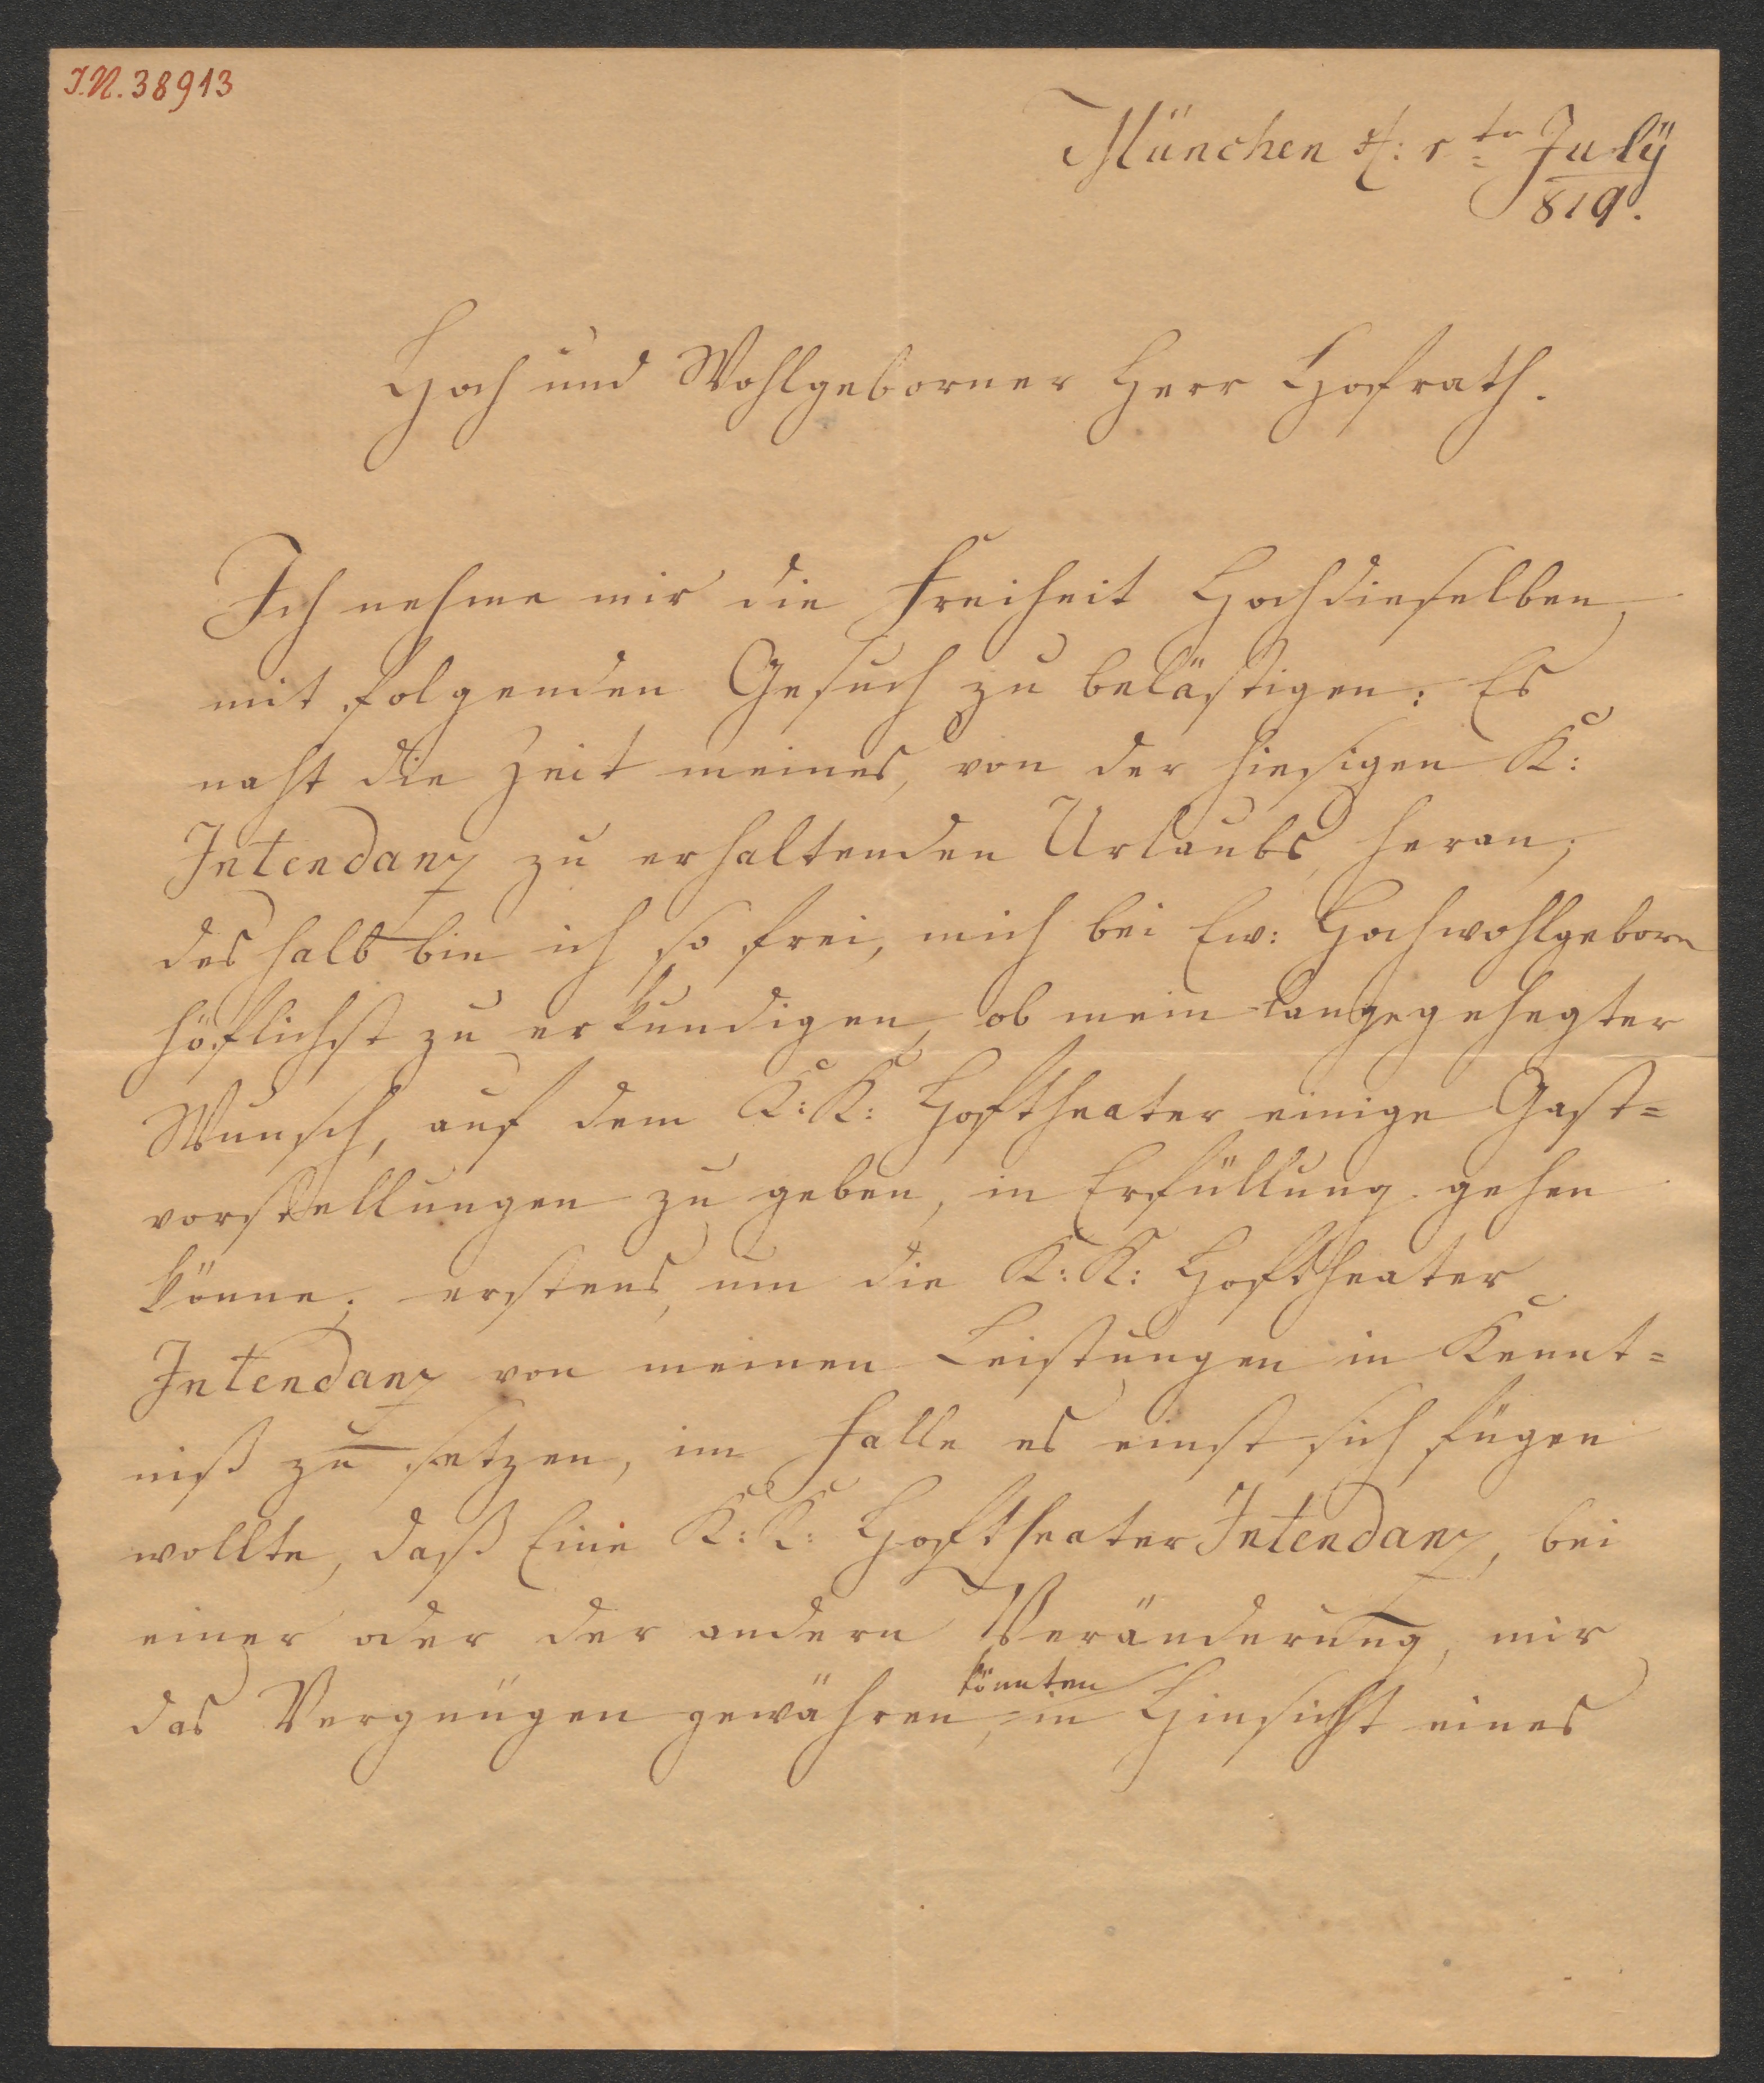 I.N. 38913
München d: 1ten July
819.
Hoch und Wohlgeborner Herr Hofrath.
Ich nehme mir die Freiheit Hochdieselben,
mit folgenden Gesuch zu belästigen: Es
naht die Zeit meines, von der hiesigen K:
Intendanz zu erhaltenden Urlaubs, heran;
deshalb bin ich so frei, mich bei Ew: Hochwohlgeborn
höflichst zu erkundigen, ob mein langgehegter
Wunsch, auf dem K: K: Hoftheater einige Gast=
vorstellungen zu geben, in Erfüllung gehen
könne; erstens, um die K: K: Hoftheater
Intendanz von meinen Leistungen in Kennt=
niß zu setzen, im Falle es einst sich fügen
wollte, daß Eine K: K: Hoftheater Intendanz, bei
einer oder der andern Veränderung, mir
könnten
das Vergnügen gewähren, in Hinsicht eines